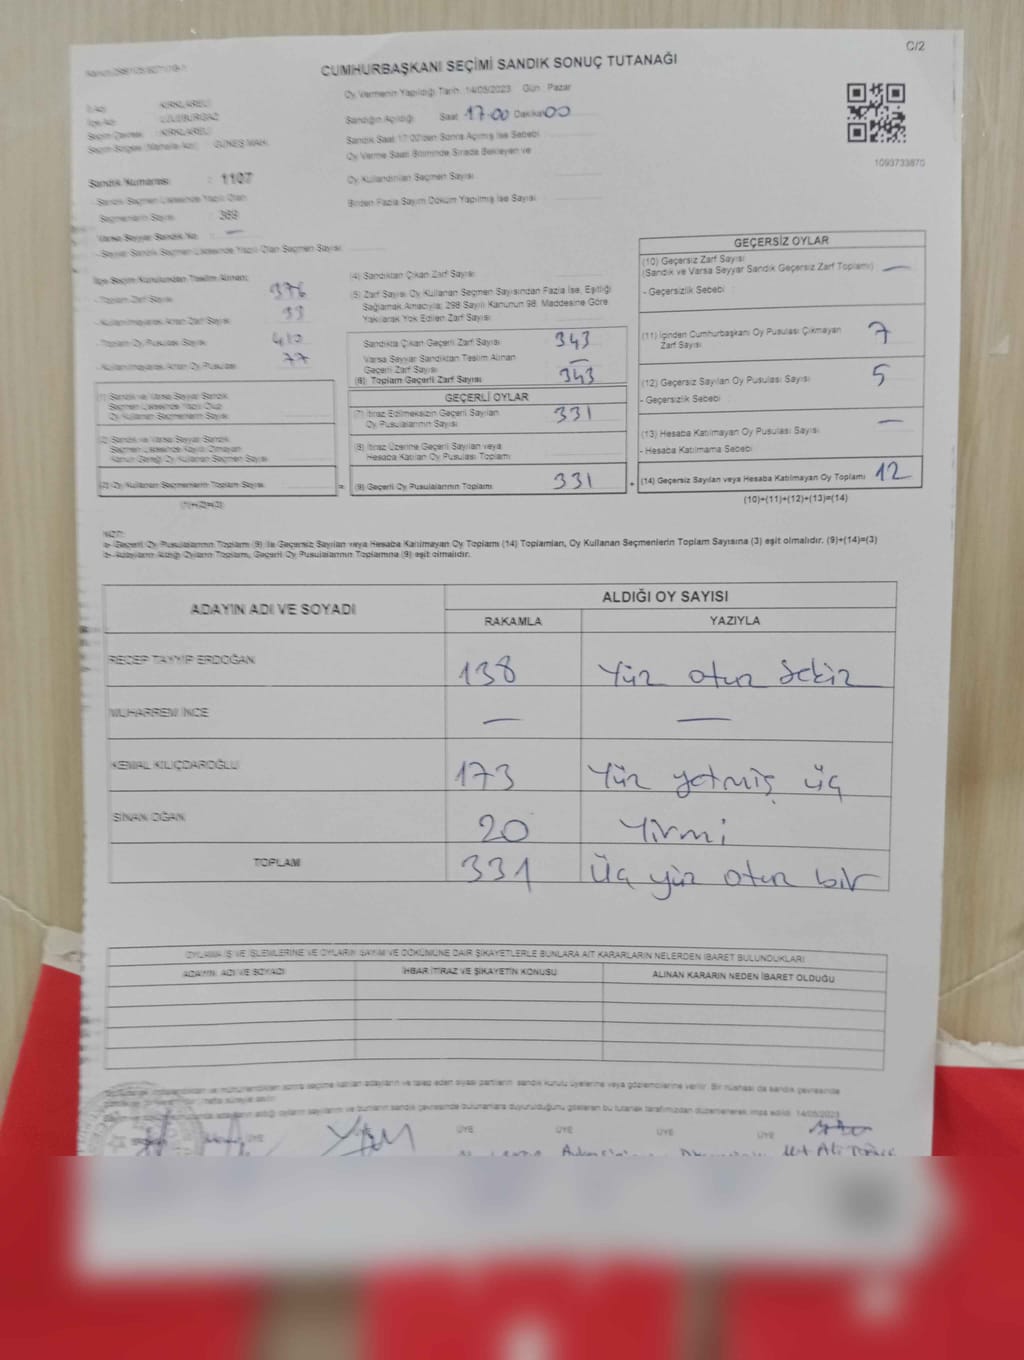 C/2
CUMHURBAŞKANI SEÇİMİ SANDIK SONUÇ TUTANAĞI
Oy Vermenin Yapıldığı Tarih: 14/05/2023 Gün : Pazar
Sandığın Açıldığı Saat 17:00 Dakika 00
Sandık Saat 17:00'den Sonra Açılmış İse Sebebi
Oy Verme Saati Bitiminde Sırada Bekleyen ve
Oy Kullandırılan Seçmen Sayısı
Birden Fazla Sayım Döküm Yapılmış İse Sayısı
1093733870
İl Adı : KIRKLARELİ
İlçe Adı : LÜLEBURGAZ
Seçim Çevresi : KIRKLARELİ
GÜNEŞ MAH.
Sandık Numarası : 1107
- Sandık Seçmen Listesinde Yazılı Olan
Seçmenlerin Sayısı : 369
Varsa Seyyar Sandık No : —
- Seyyar Sandık Seçmen Listesinde Yazılı Olan Seçmen Sayısı
İlçe Seçim Kurulundan Teslim Alınan;
- Toplam Zarf Sayısı 376
- Kullanılmayarak Artan Zarf Sayısı 33
- Toplam Oy Pusulası Sayısı
- Kullanılmayarak Artan Oy Pusulası 77
(1) Sandık ve Varsa Seyyar Sandık
Seçmen Listesinde Kayıtlı Olup
Oy Kullanan Seçmenlerin Sayısı
(2) Sandık ve Varsa Seyyar Sandık
Seçmen Listesinde Kayıtlı Olmayan
Kanun Gereği Oy Kullanan Seçmen Sayısı
(3) Oy Kullanan Seçmenlerin Toplam Sayısı
(1)+(2)=(3)
(4) Sandıktan Çıkan Zarf Sayısı
(5) Zarf Sayısı Oy Kullanan Seçmen Sayısından Fazla İse, Eşitliği
Sağlamak Amacıyla; 298 Sayılı Kanunun 98. Maddesine Göre
Yakılarak Yok Edilen Zarf Sayısı
Sandıkta Çıkan Geçerli Zarf Sayısı 343
Varsa Seyyar Sandıktan Teslim Alınan
Geçerli Zarf Sayısı —
(6) Toplam Geçerli Zarf Sayısı 343
GEÇERLİ OYLAR
(7) İtiraz Edilmeksizin Geçerli Sayılan
Oy Pusulalarının Sayısı 331
(8) İtiraz Üzerine Geçerli Sayılan veya
Hesaba Katılan Oy Pusulası Toplamı
= (9) Geçerli Oy Pusulalarının Toplamı 331
GEÇERSİZ OYLAR
(10) Geçersiz Zarf Sayısı
(Sandık ve Varsa Seyyar Sandık Geçersiz Zarf Toplamı) —
- Geçersizlik Sebebi
(11) İçinden Cumhurbaşkanı Oy Pusulası Çıkmayan
Zarf Sayısı 7
(12) Geçersiz Sayılan Oy Pusulası Sayısı 5
- Geçersizlik Sebebi
(13) Hesaba Katılmayan Oy Pusulası Sayısı —
- Hesaba Katılmama Sebebi
+ (14) Geçersiz Sayılan veya Hesaba Katılmayan Oy Toplamı 12
(10)+(11)+(12)+(13)=(14)
NOT:
a- Geçerli Oy Pusulalarının Toplamı (9) ile Geçersiz Sayılan veya Hesaba Katılmayan Oy Toplamı (14) Toplamları, Oy Kullanan Seçmenlerin Toplam Sayısına (3) eşit olmalıdır. (9)+(14)=(3)
b- Adayların Aldığı Oyların Toplamı, Geçerli Oy Pusulalarının Toplamına (9) eşit olmalıdır.
ADAYIN ADI VE SOYADI ALDIĞI OY SAYISI
RAKAMLA YAZIYLA
RECEP TAYYİP ERDOĞAN 138 Yüz otuz sekiz
MUHARREM İNCE — —
KEMAL KILIÇDAROĞLU 173 Yüz yetmiş üç
SİNAN OĞAN 20 Yirmi
TOPLAM 331 Üç yüz otuz bir
OYLAMA İŞ VE İŞLEMLERİNE VE OYLARIN SAYIM VE DÖKÜMÜNE DAİR ŞİKAYETLERLE BUNLARA AİT KARARLARIN NELERDEN İBARET BULUNDUKLARI
ADAYIN ADI VE SOYADI İHBAR İTİRAZ VE ŞİKAYETİN KONUSU ALINAN KARARIN NEDEN İBARET OLDUĞU
sandık kurulu üyelerine veya gözlemcilerine verilir. Bir nüshası da sandık çevresinde
bu tutanak tarafımızdan düzenlenerek imza edildi. 14/05/2023
ÜYE ÜYE ÜYE ÜYE ÜYE